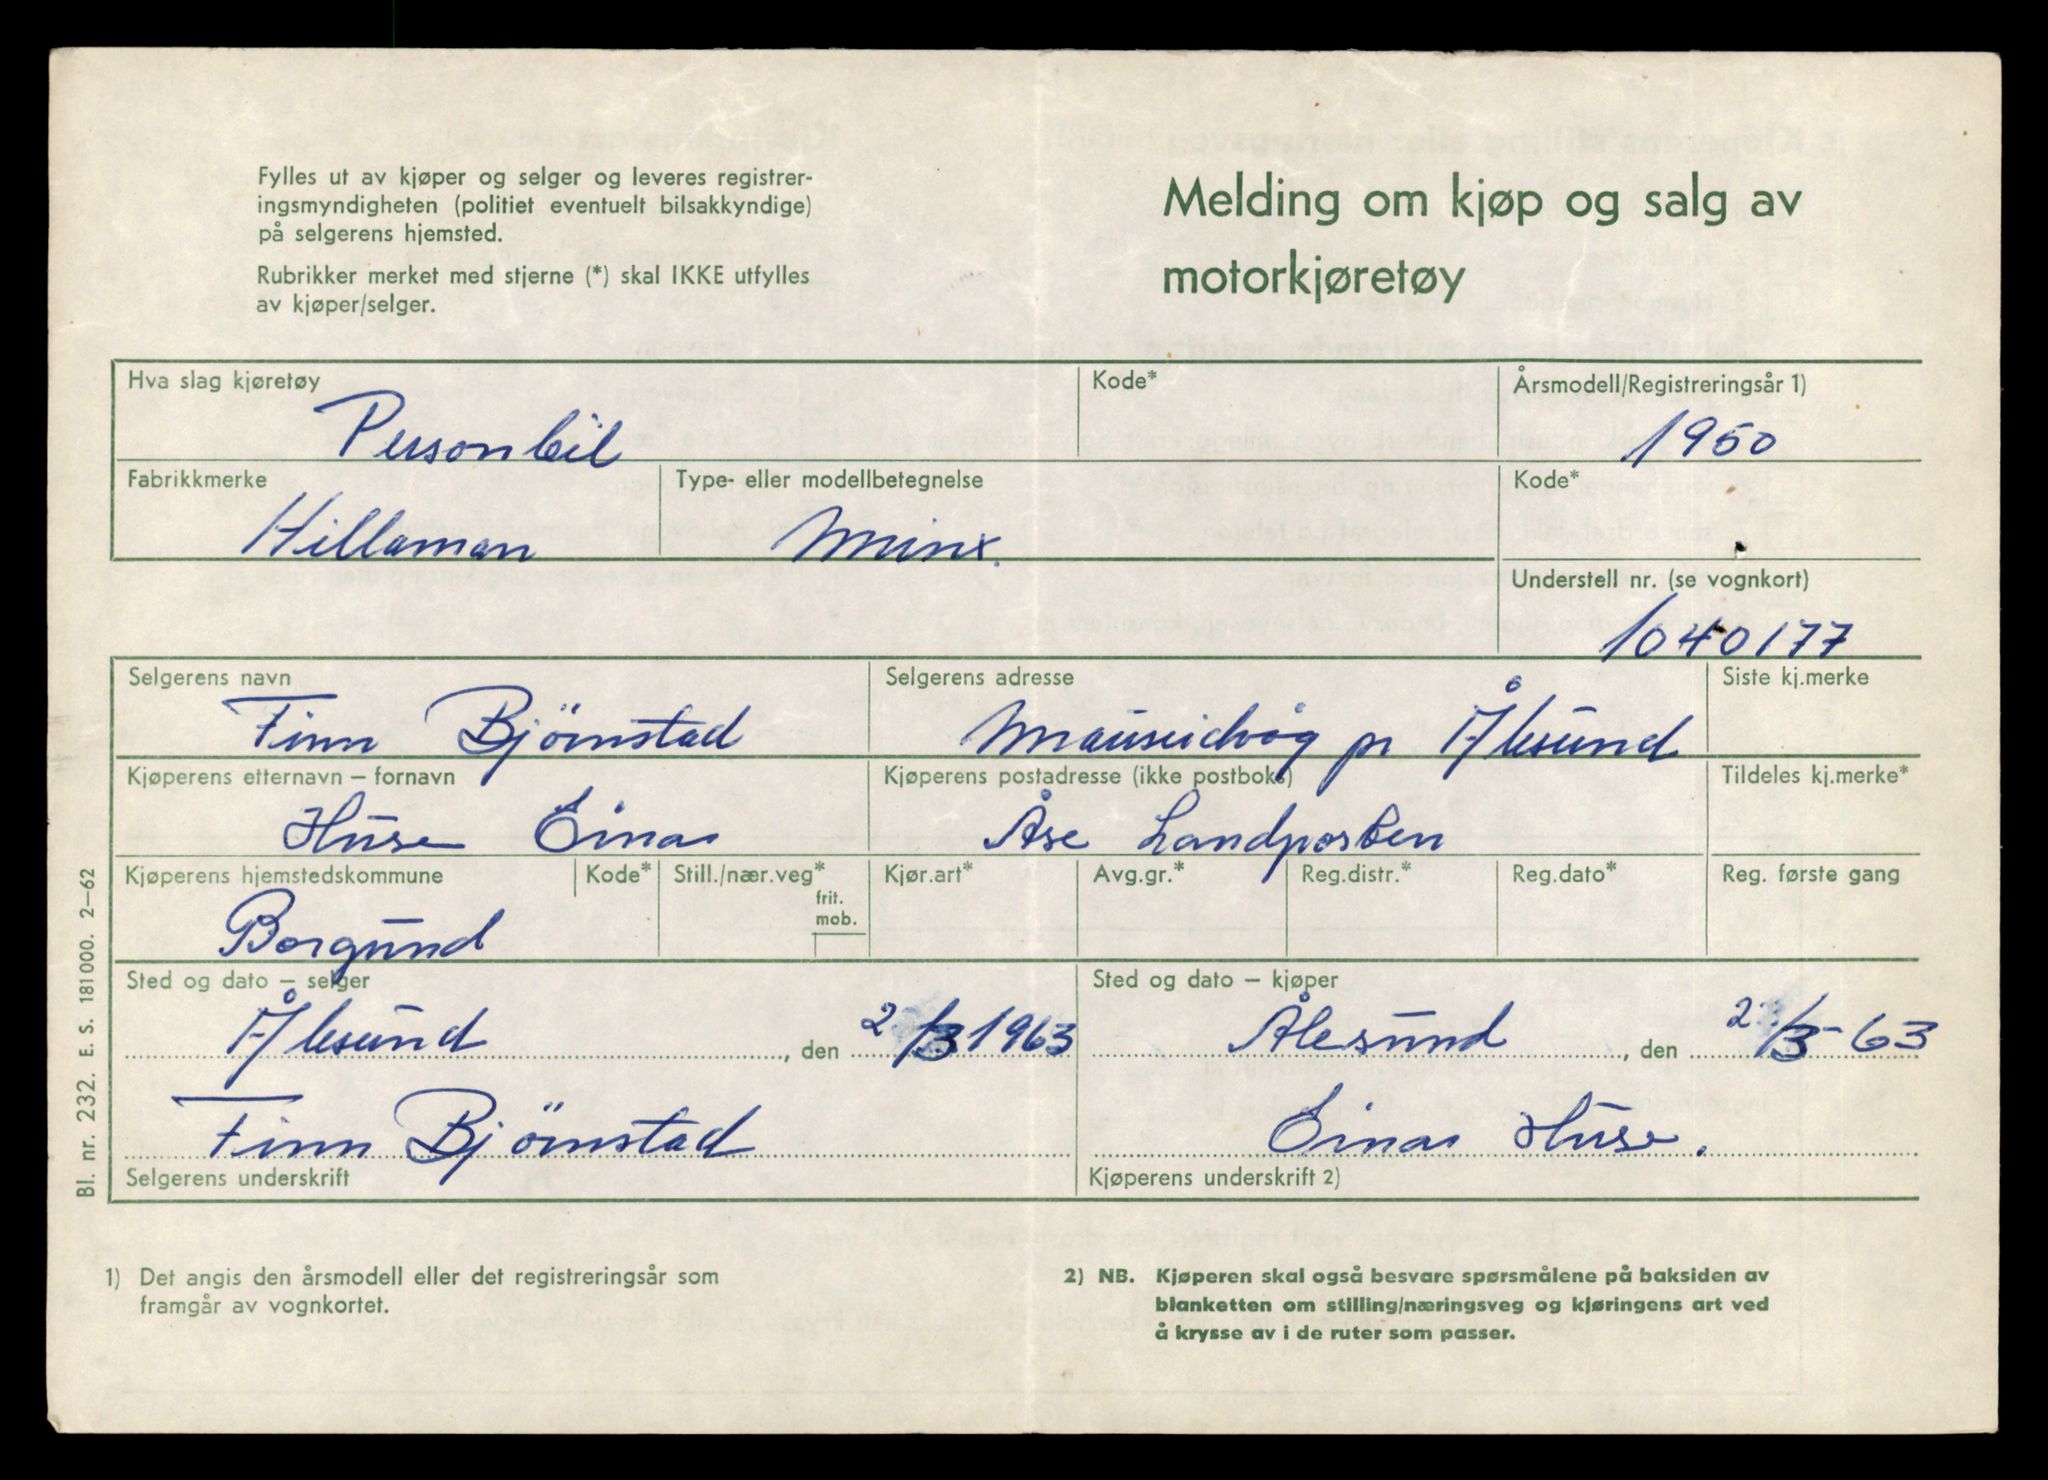 Fylles ut av kjøper og selger og leveres registrer-
ingsmyndigheten (politiet eventuelt bilsakkyndige)
på selgerens hjemsted.
Rubrikker merket med stjerne (*) skal IKKE utfylles
av kjøper/selger.
Melding om kjøp og salg av
motorkjøretøy
Hva slag kjøretøy
Kode*
Årsmodell/Registreringsår 1)
Personbil
1950
Fabrikkmerke
Type- eller modellbetegnelse
Kode*
Hillaman
Minx.
Understell nr. (se vognkort)
1040177
Selgerens navn
Selgerens adresse
Siste kj.merke
Finn Bjömstad
Mauseidvåg pr Ålesund
Kjøperens etternavn – fornavn
Kjøperens postadresse (ikke postboks)
Tildeles kj.merke*
Huse Einar
Åse Landposten
Kjøperens hjemstedskommune
Kode*
Still./nær.veg*
frit.
mob.
Kjør.art*
Avg.gr.*
Reg.distr.*
Reg.dato*
Reg. første gang
Borgund
Sted og dato – selger
Sted og dato – kjøper
Ålesund, den 2/3 1963
Ålesund, den 2/3-63
Finn Bjömstad
Einar Huse.
Selgerens underskrift
Kjøperens underskrift 2)
Bl. nr. 232. E. S. 181000. 2–62
1) Det angis den årsmodell eller det registreringsår som
framgår av vognkortet.
2) NB. Kjøperen skal også besvare spørsmålene på baksiden av
blanketten om stilling/næringsveg og kjøringens art ved
å krysse av i de ruter som passer.